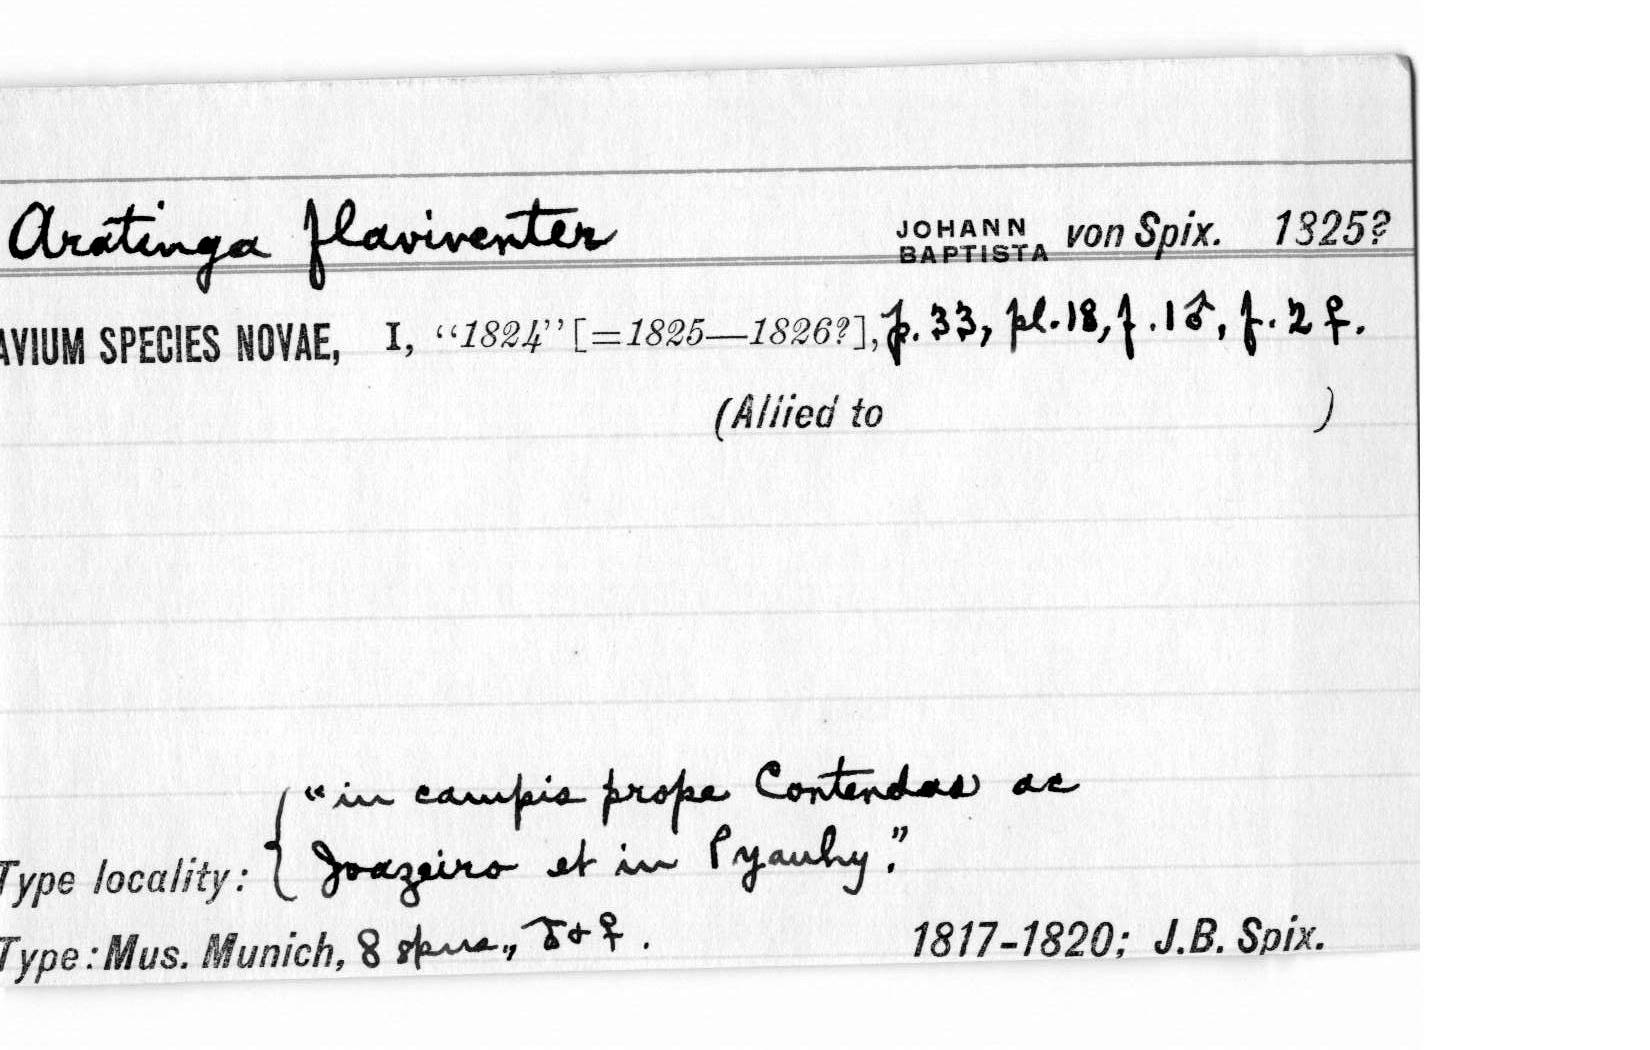 Aratinga flaviventer JOHANN BAPTISTA von Spix. 1825?
AVIUM SPECIES NOVAE, I, “1824” [=1825—1826?], p. 33, pl. 18, f. 1 ♂, f. 2 ♀.
(Allied to )
“in campis prope Contendas ac
Type locality: { Joazeiro et in Pyauhy.”
Type: Mus. Munich, 8 spms., ♂ + ♀. 1817-1820; J.B. Spix.